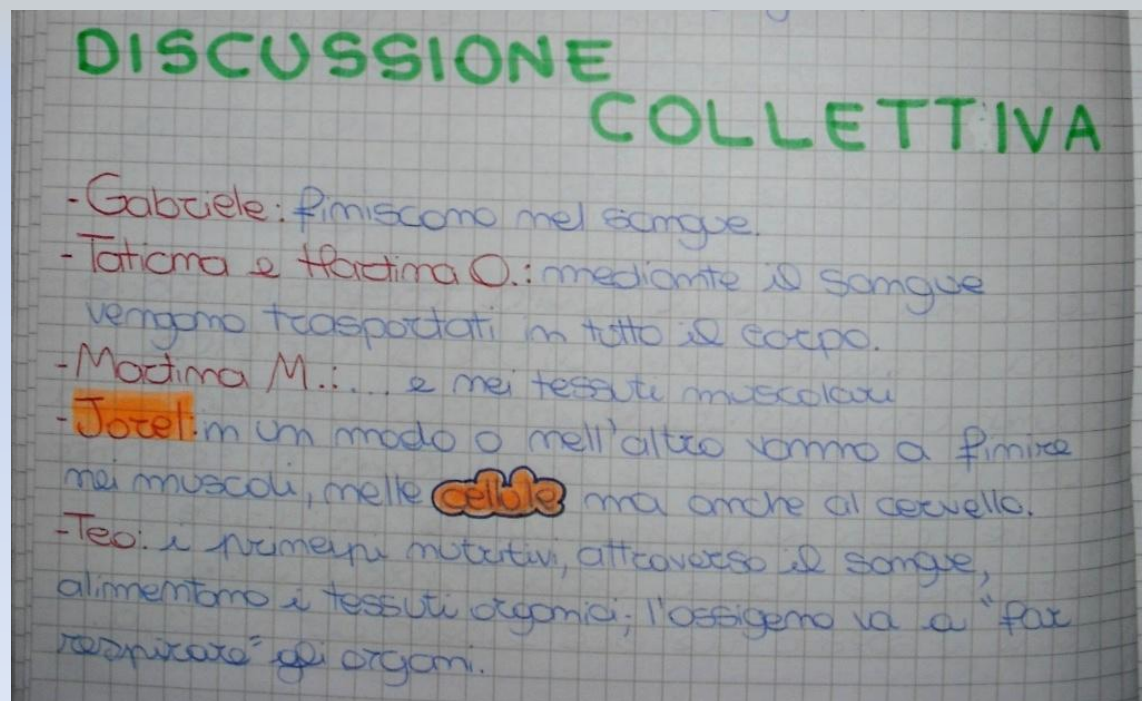 DISCUSSIONE
COLLETTIVA
-Gabriele: finiscono nel sangue.
-Tatiana e Martina O.: mediante il sangue
vengono trasportati in tutto il corpo.
-Martina M.:... e nei tessuti muscolari
-Jorel: in un modo o nell'altro vanno a finire
nei muscoli, nelle cellule ma anche al cervello.
-Teo: i principi nutritivi, attraverso il sangue,
alimentano i tessuti organici; l'ossigeno va a "far
respirare" gli organi.